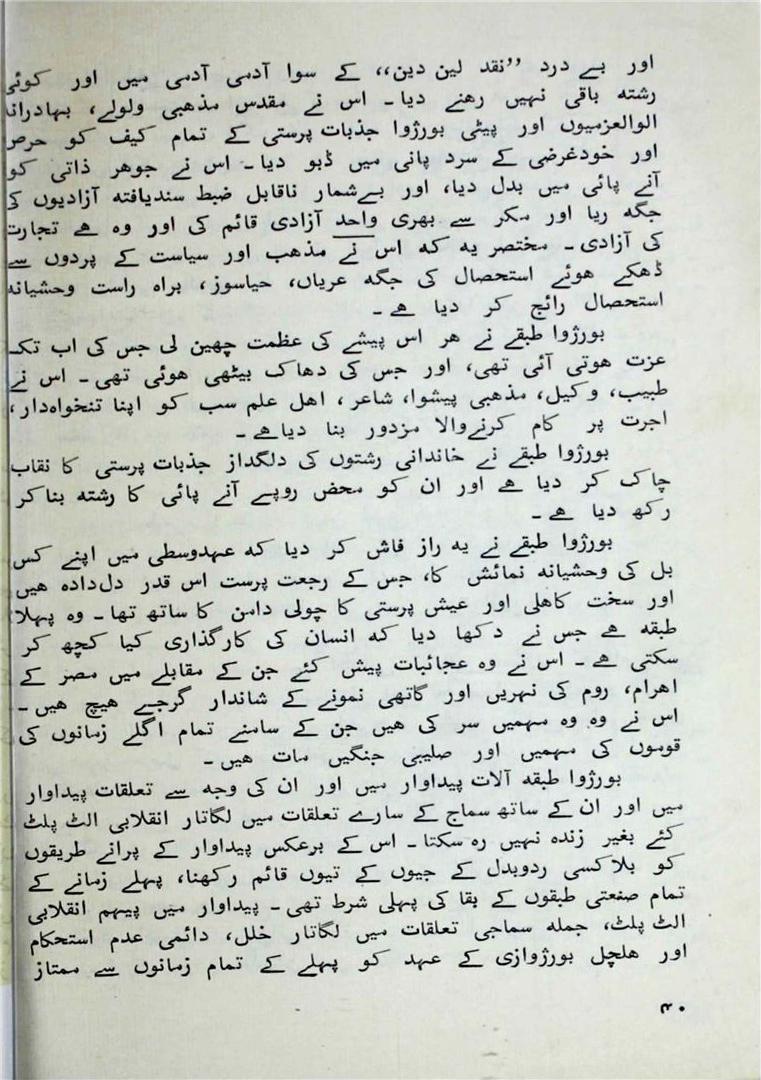 اور بے درد ,,نقد لین دین،، کے سوا آدمی آدمی میں اور کوئی
رشتہ باقی نہیں رہنے دیا۔ اس نے مقدس مذہبی ولولے، بہادرانہ
الوالعزمیوں اور پیٹی بورژوا جذبات پرستی کے تمام کیف کو حرص
اور خودغرضی کے سرد پانی میں ڈبو دیا۔ اس نے جوہر ذاتی کو
آنے پائی میں بدل دیا، اور بےشمار ناقابل ضبط سندیافتہ آزادیوں کی
جگہ ریا اور مکر سے بھری واحد آزادی قائم کی اور وہ ہے تجارت
کی آزادی۔ مختصر یہ کہ اس نے مذہب اور سیاست کے پردوں سے
ڈھکے ہوئے استحصال کی جگہ عریاں، حیاسوز، براہ راست وحشیانہ
استحصال رائج کر دیا ہے۔
بورژوا طبقے نے ہر اس پیشے کی عظمت چھین لی جس کی اب تک
عزت ہوتی آئی تھی، اور جس کی دھاک بیٹھی ہوئی تھی۔ اس نے
طبیب، وکیل، مذہبی پیشوا، شاعر، اہل علم سب کو اپنا تنخواہدار،
اجرت پر کام کرنےوالا مزدور بنا دیاہے۔
بورژوا طبقے نے خاندانی رشتوں کی دلگداز جذبات پرستی کا نقاب
چاک کر دیا ہے اور ان کو محض روپے آنے پائی کا رشتہ بناکر
رکھ دیا ہے۔
بورژوا طبقے نے یہ راز فاش کر دیا کہ عہدوسطی میں اپنے کس
بل کی وحشیانہ نمائش کا، جس کے رجعت پرست اس قدر دلدادہ ہیں
اور سخت کاہلی اور عیش پرستی کا چولی دامن کا ساتھ تھا۔ وہ پہلا
طبقہ ہے جس نے دکھا دیا کہ انسان کی کارگذاری کیا کچھ کر
سکتی ہے۔ اس نے وہ عجائبات پیش کئے جن کے مقابلے میں مصر کے
اہرام، روم کی نہریں اور گاتھی نمونے کے شاندار گرجے ہیچ ہیں۔
اس نے وہ وہ مہمیں سر کی ہیں جن کے سامنے تمام اگلے زمانوں کی
قوموں کی مہمیں اور صلیبی جنگیں مات ہیں۔
بورژوا طبقہ آلات پیداوار میں اور ان کی وجہ سے تعلقات پیداوار
میں اور ان کے ساتھ سماج کے سارے تعلقات میں لگاتار انقلابی الٹ پلٹ
کئے بغیر زندہ نہیں رہ سکتا۔ اس کے برعکس پیداوار کے پرانے طریقوں
کو بلاکسی ردوبدل کے جیوں کے تیوں قائم رکھنا، پہلے زمانے کے
تمام صنعتی طبقوں کے بقا کی پہلی شرط تھی۔ پیداوار میں پیہم انقلابی
الٹ پلٹ، جملہ سماجی تعلقات میں لگاتار خلل، دائمی عدم استحکام
اور ہلچل بورژوازی کے عہد کو پہلے کے تمام زمانوں سے ممتاز
۴۰